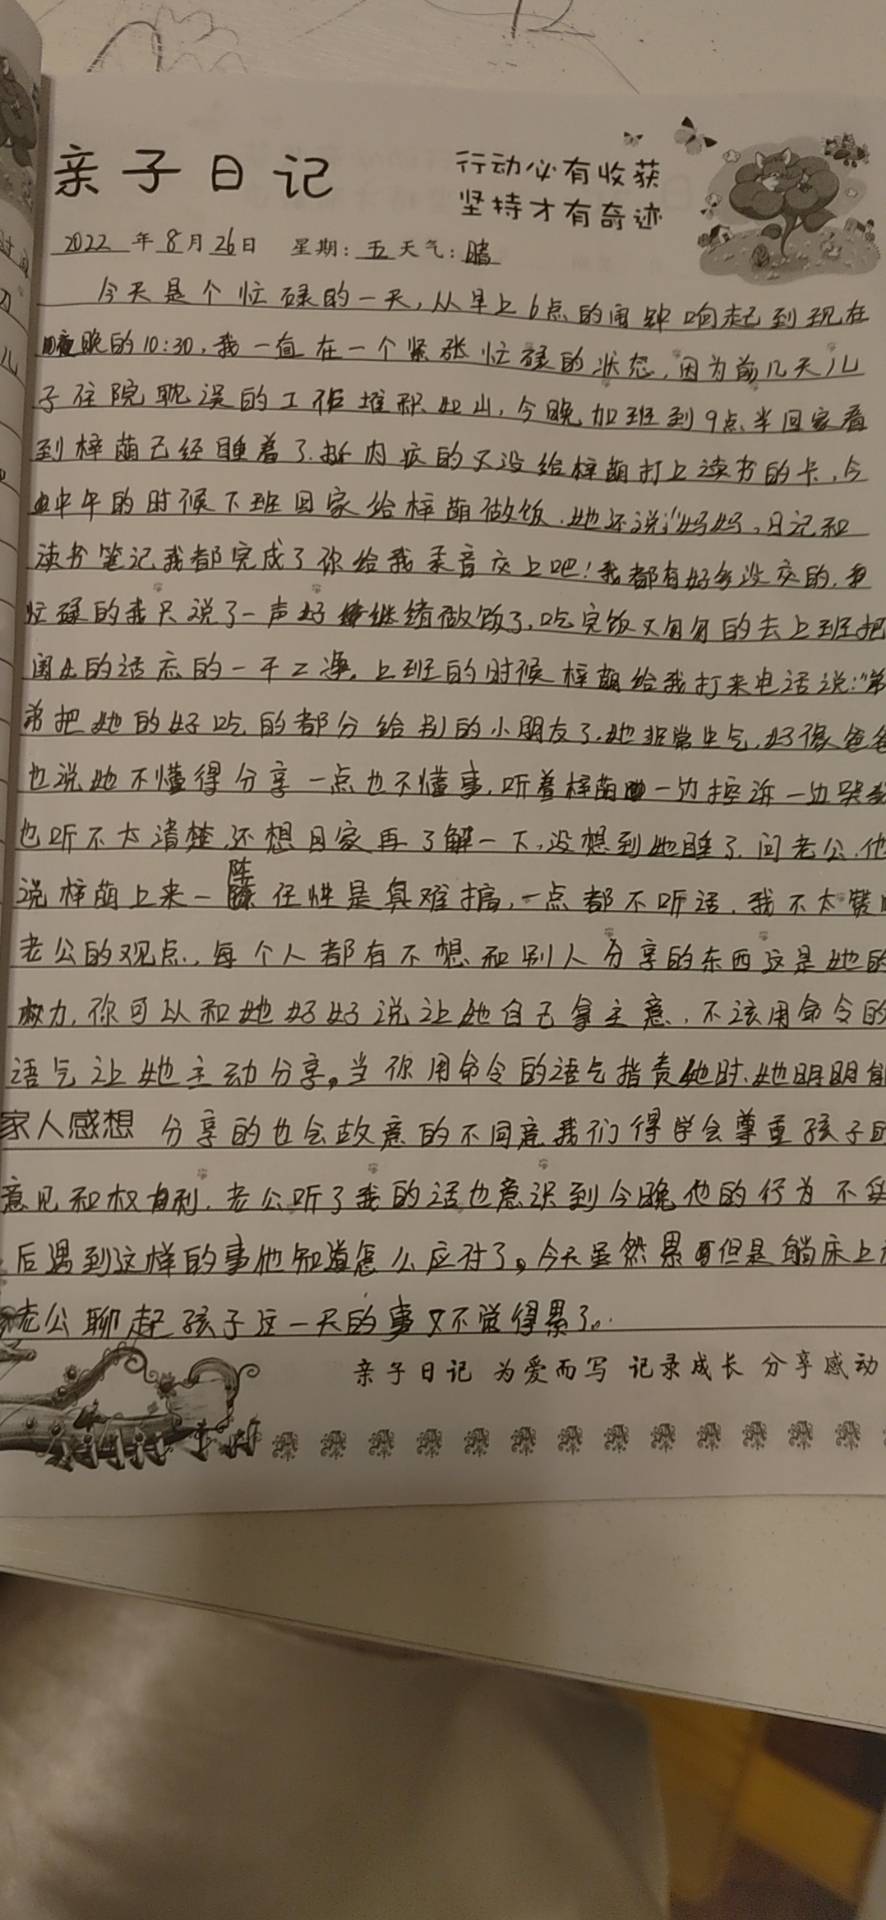 亲子日记
行动必有收获
坚持才有奇迹
2022 年 8 月 26 日 星期: 五 天气: 晴
今天是个忙碌的一天,从早上6点的闹钟响起到现在
夜晚的10:30,我一直在一个紧张忙碌的状态,因为前几天儿
子住院耽误的工作堆积如山,今晚加班到9点半回家看
到梓萌已经睡着了.内疚的又没给梓萌打上读书的卡,今
中午的时候下班回家给梓萌做饭.她还说:"妈妈,日记和
读书笔记我都完成了你给我录音交上吧!我都有好多没交的,
忙碌的我只说了一声好继续做饭了,吃完饭又匆匆的去上班把
闺女的话忘的一干二净。上班的时候梓萌给我打来电话说:"弟
弟把她的好吃的都分给别的小朋友了.她非常生气.好像爸爸
也说她不懂得分享一点也不懂事,听着梓萌一边控诉一边哭我
也听不太清楚,还想回家再了解一下,没想到她睡了.问老公,他
说梓萌上来一阵任性是真难搞,一点都不听话.我不太赞
老公的观点,每个人都有不想和别人分享的东西这是她的
权力,你可以和她好好说让她自己拿主意.不该用命令的
语气让她主动分享。当你用命令的语气指责她时.她明明
家人感想 分享的也会故意的不同意我们得学会尊重孩子
意见和权利.老公听了我的话也意识到今晚他的行为不
后遇到这样的事他知道怎么应对了。今天虽然累但是躺床上
老公聊起孩子这一天的事又不觉得累了。
亲子日记 为爱而写 记录成长 分享感动